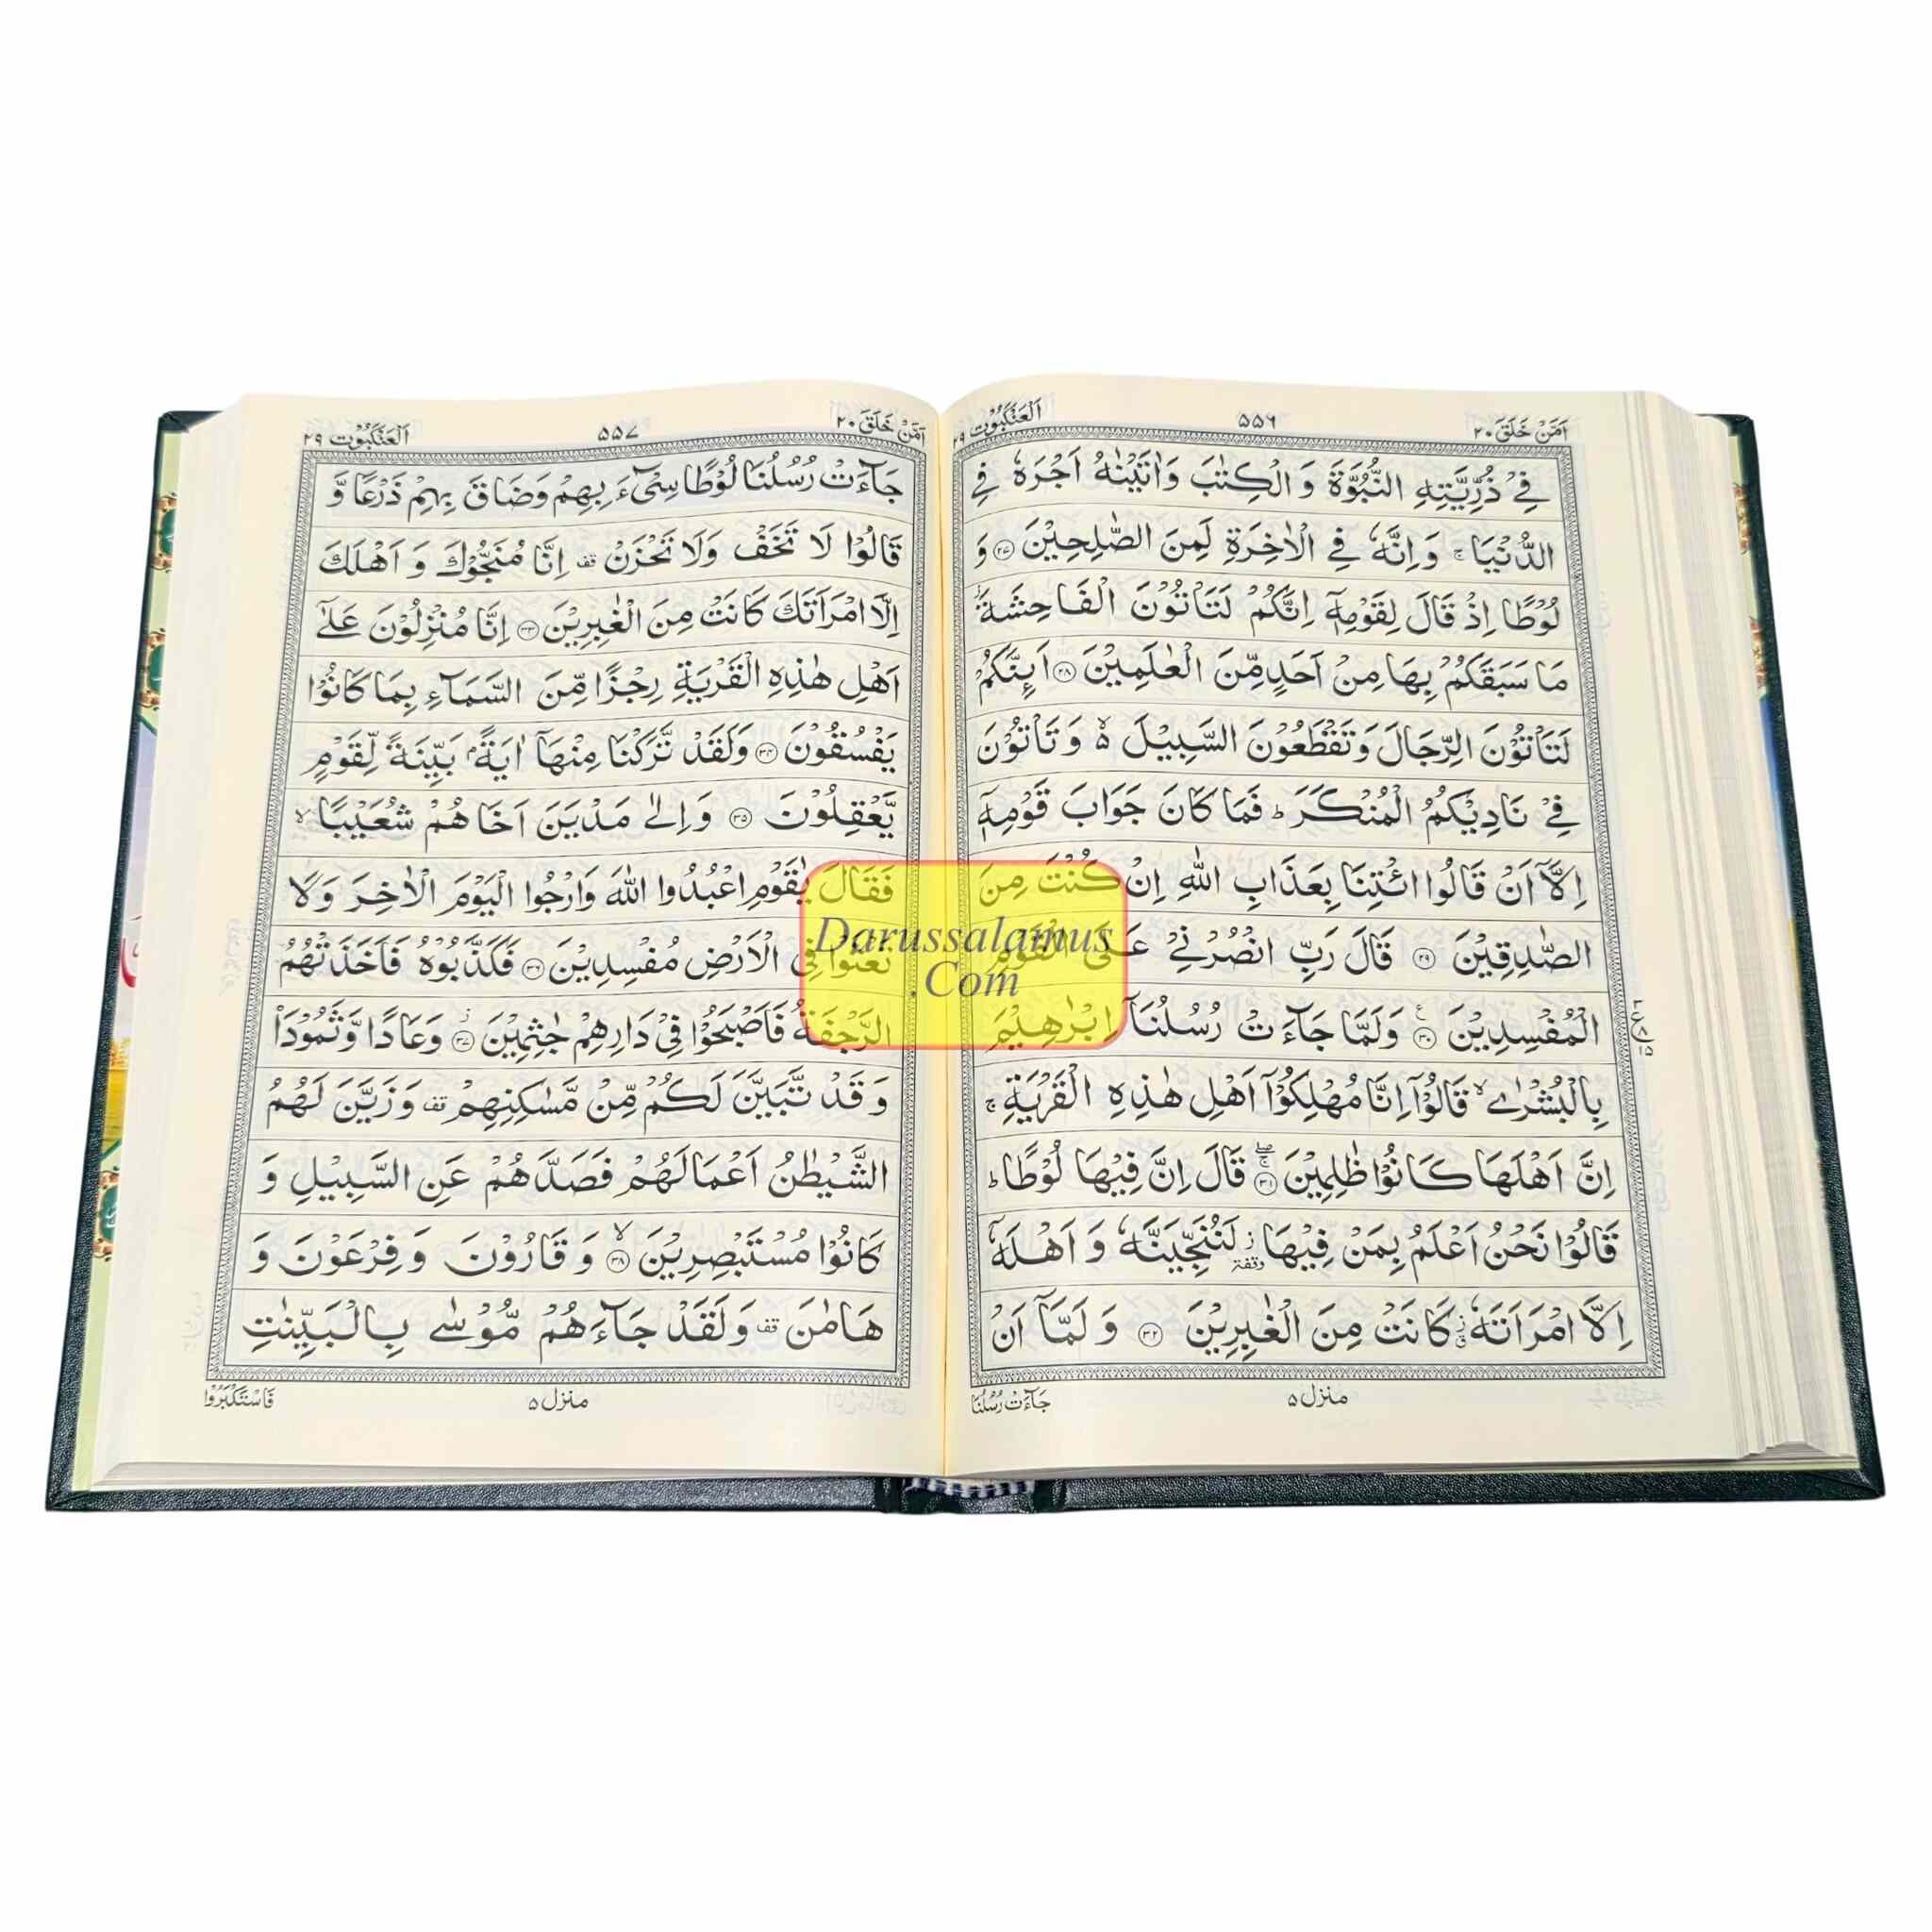 اَمَّنْ خَلَقَ ٢٠
٥٥٦
اَلْعَنْكَبُوْت ٢٩
فِیْ ذُرِّیَّتِهِ النُّبُوَّةَ وَ الْكِتٰبَ وَاٰتَیْنٰهُ اَجْرَهٗ فِی
الدُّنْیَا ۚ وَ اِنَّهٗ فِی الْاٰخِرَةِ لَمِنَ الصّٰلِحِیْنَ ۝٢٧ وَ
لُوْطًا اِذْ قَالَ لِقَوْمِهٖۤ اِنَّكُمْ لَتَاْتُوْنَ الْفَاحِشَةَ ؗ
مَا سَبَقَكُمْ بِهَا مِنْ اَحَدٍ مِّنَ الْعٰلَمِیْنَ ۝٢٨ اَىِٕنَّكُمْ
لَتَاْتُوْنَ الرِّجَالَ وَ تَقْطَعُوْنَ السَّبِیْلَ ۙ۬ وَ تَاْتُوْنَ
فِیْ نَادِیْكُمُ الْمُنْكَرَ ؕ فَمَا كَانَ جَوَابَ قَوْمِهٖۤ
اِلَّاۤ اَنْ قَالُوا ائْتِنَا بِعَذَابِ اللّٰهِ اِنْ كُنْتَ مِنَ
الصّٰدِقِیْنَ ۝٢٩ قَالَ رَبِّ انْصُرْنِیْ عَلَی الْقَوْمِ
الْمُفْسِدِیْنَ ۝٣٠ وَلَمَّا جَآءَتْ رُسُلُنَاۤ اِبْرٰهِیْمَ
بِالْبُشْرٰی ۙ قَالُوْۤا اِنَّا مُهْلِكُوْۤا اَهْلِ هٰذِهِ الْقَرْیَةِ ۚ
اِنَّ اَهْلَهَا كَانُوْا ظٰلِمِیْنَ ۝٣١ قَالَ اِنَّ فِیْهَا لُوْطًا ؕ
قَالُوْا نَحْنُ اَعْلَمُ بِمَنْ فِیْهَا ؗ وقفة لَنُنَجِّیَنَّهٗ وَ اَهْلَهٗۤ
اِلَّا امْرَاَتَهٗ ؗ كَانَتْ مِنَ الْغٰبِرِیْنَ ۝٣٢ وَ لَمَّاۤ اَنْ
منزل ٥
جَآءَتْ رُسُلُنَا
اَمَّنْ خَلَقَ ٢٠
٥٥٧
اَلْعَنْكَبُوْت ٢٩
جَآءَتْ رُسُلُنَا لُوْطًا سِیْٓءَ بِهِمْ وَضَاقَ بِهِمْ ذَرْعًا وَّ
قَالُوْا لَا تَخَفْ وَلَا تَحْزَنْ قف اِنَّا مُنَجُّوْكَ وَ اَهْلَكَ
اِلَّا امْرَاَتَكَ كَانَتْ مِنَ الْغٰبِرِیْنَ ۝٣٣ اِنَّا مُنْزِلُوْنَ عَلٰۤی
اَهْلِ هٰذِهِ الْقَرْیَةِ رِجْزًا مِّنَ السَّمَآءِ بِمَا كَانُوْا
یَفْسُقُوْنَ ۝٣٤ وَلَقَدْ تَّرَكْنَا مِنْهَاۤ اٰیَةًۢ بَیِّنَةً لِّقَوْمٍ
یَّعْقِلُوْنَ ۝٣٥ وَ اِلٰی مَدْیَنَ اَخَاهُمْ شُعَیْبًا ۙ
فَقَالَ یٰقَوْمِ اعْبُدُوا اللّٰهَ وَارْجُوا الْیَوْمَ الْاٰخِرَ وَلَا
تَعْثَوْا فِی الْاَرْضِ مُفْسِدِیْنَ ۝٣٦ فَكَذَّبُوْهُ فَاَخَذَتْهُمُ
الرَّجْفَةُ فَاَصْبَحُوْا فِیْ دَارِهِمْ جٰثِمِیْنَ ۝٣٧ وَعَادًا وَّثَمُوْدَاۡ
وَ قَدْ تَّبَیَّنَ لَكُمْ مِّنْ مَّسٰكِنِهِمْ قف وَ زَیَّنَ لَهُمُ
الشَّیْطٰنُ اَعْمَالَهُمْ فَصَدَّهُمْ عَنِ السَّبِیْلِ وَ
كَانُوْا مُسْتَبْصِرِیْنَ ۝٣٨ وَ قَارُوْنَ وَ فِرْعَوْنَ وَ
هَامٰنَ قف وَلَقَدْ جَآءَهُمْ مُّوْسٰی بِالْبَیِّنٰتِ
منزل ٥
فَاسْتَكْبَرُوْا
Darussalamus
.Com